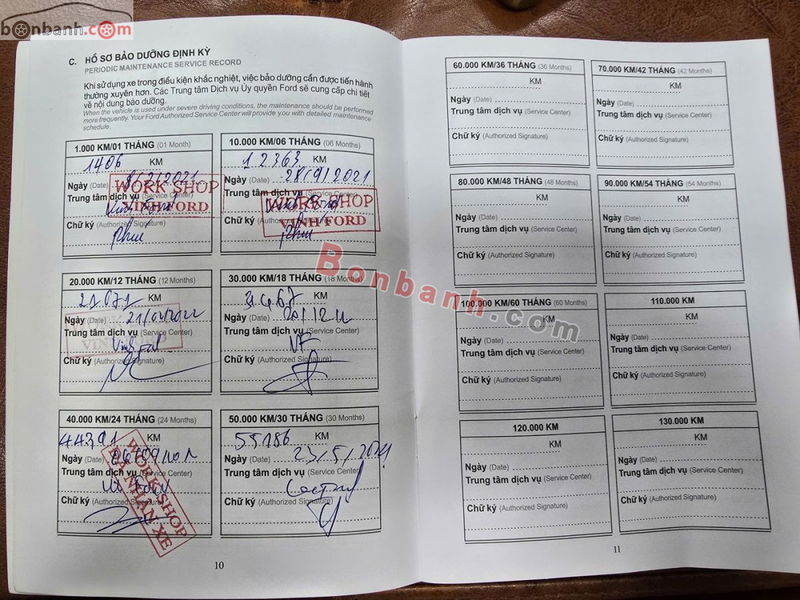 bonbanh.com
C. HỒ SƠ BẢO DƯỠNG ĐỊNH KỲ
PERIODIC MAINTENANCE SERVICE RECORD
Khi sử dụng xe trong điều kiện khắc nghiệt, việc bảo dưỡng cần được tiến hành
thường xuyên hơn. Các Trung tâm Dịch vụ Ủy quyền Ford sẽ cung cấp chi tiết
về nội dung bảo dưỡng.
When the vehicle is used under severe driving conditions, the maintenance should be performed
more frequently. Your Ford Authorized Service Center will provide you with detailed maintenance
schedule.
1.000 KM/01 THÁNG (01 Month)
1406 KM
Ngày (Date)
Trung tâm dịch vụ (Service Center)
Chữ ký (Authorized Signature)
WORK SHOP
VINH FORD
10.000 KM/06 THÁNG (06 Months)
12363 KM
Ngày (Date) 28/9/2021
Trung tâm dịch vụ
Chữ ký
WORK SHOP
VINH FORD
20.000 KM/12 THÁNG (12 Months)
21071 KM
Ngày (Date)
Trung tâm dịch vụ (Service Center)
Chữ ký (Authorized Signature)
30.000 KM/18 THÁNG (18 Months)
KM
Ngày (Date)
Trung tâm dịch vụ (Service Center)
VF
Chữ ký (Authorized Signature)
40.000 KM/24 THÁNG (24 Months)
44391 KM
Ngày (Date)
Trung tâm dịch vụ (Service Center)
Chữ ký (Authorized Signature)
WORK SHOP
50.000 KM/30 THÁNG (30 Months)
55186 KM
Ngày (Date) 23/5/2024
Trung tâm dịch vụ (Service Center)
Chữ ký (Authorized Signature)
10
60.000 KM/36 THÁNG (36 Months)
KM
Ngày (Date)
Trung tâm dịch vụ (Service Center)
Chữ ký (Authorized Signature)
70.000 KM/42 THÁNG (42 Months)
KM
Ngày (Date)
Trung tâm dịch vụ (Service Center)
Chữ ký (Authorized Signature)
80.000 KM/48 THÁNG (48 Months)
KM
Ngày (Date)
Trung tâm dịch vụ (Service Center)
Chữ ký (Authorized Signature)
90.000 KM/54 THÁNG (54 Months)
KM
Ngày (Date)
Trung tâm dịch vụ (Service Center)
Chữ ký (Authorized Signature)
100.000 KM/60 THÁNG (60 Months)
KM
Ngày (Date)
Trung tâm dịch vụ (Service Center)
Chữ ký (Authorized Signature)
110.000 KM
Ngày (Date)
Trung tâm dịch vụ (Service Center)
Chữ ký (Authorized Signature)
120.000 KM
Ngày (Date)
Trung tâm dịch vụ (Service Center)
Chữ ký (Authorized Signature)
130.000 KM
Ngày (Date)
Trung tâm dịch vụ (Service Center)
Chữ ký (Authorized Signature)
11
Bonbanh.com